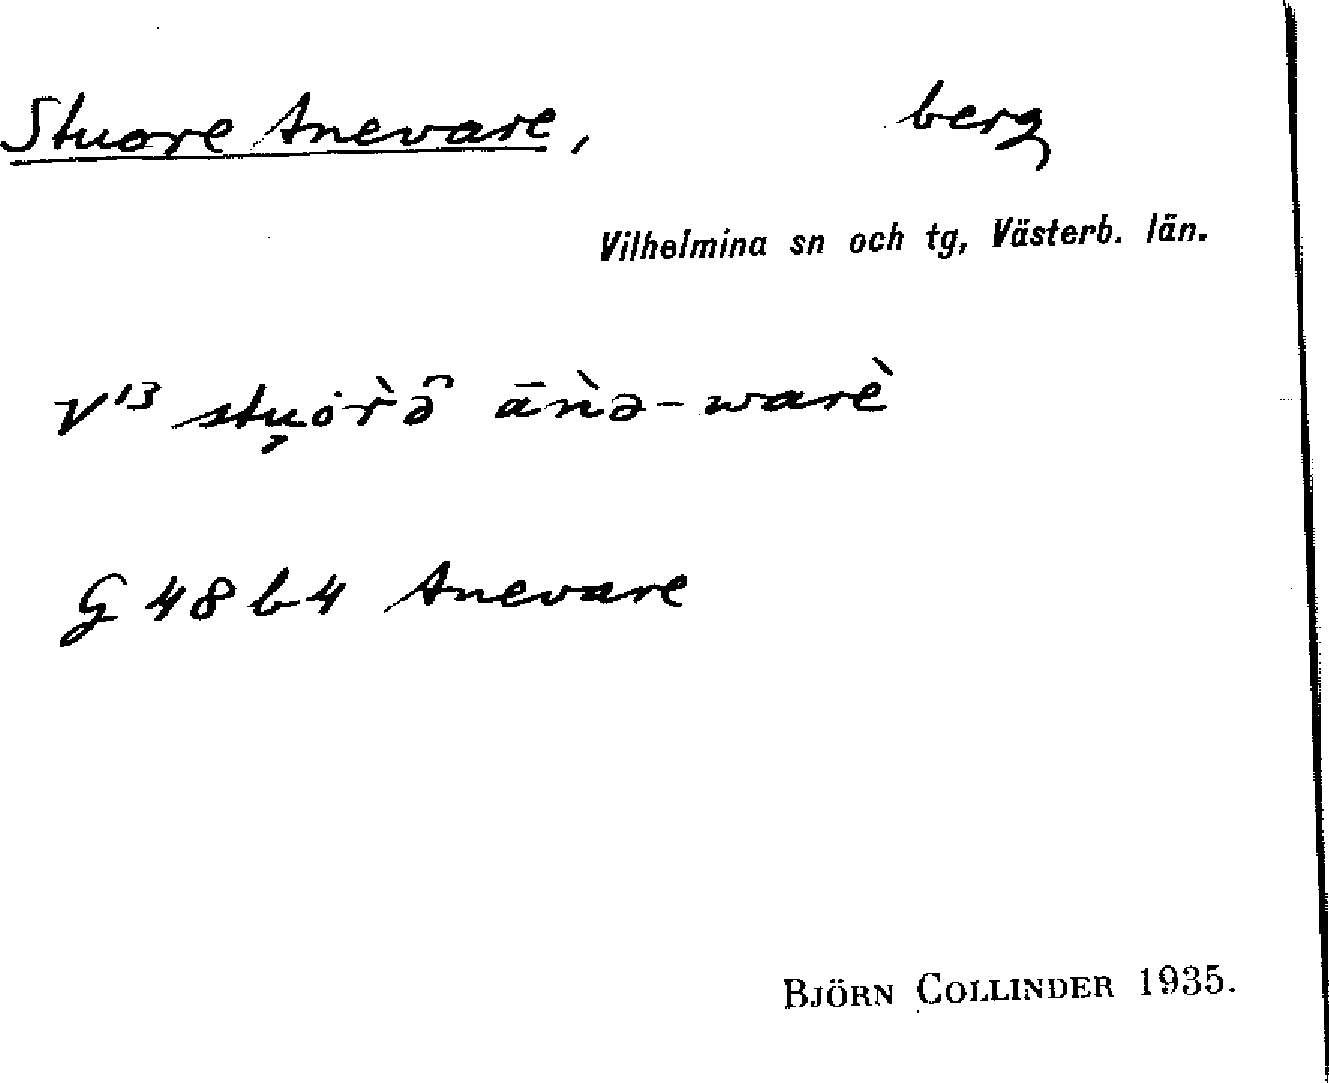 Stuore Anevare, berg
Vilhelmina sn och tg, Västerb. län.
V¹³ stu̯ȯr̀ə̑ āǹə-warè
G 48 b 4 Anevare
BJÖRN COLLINDER 1935.